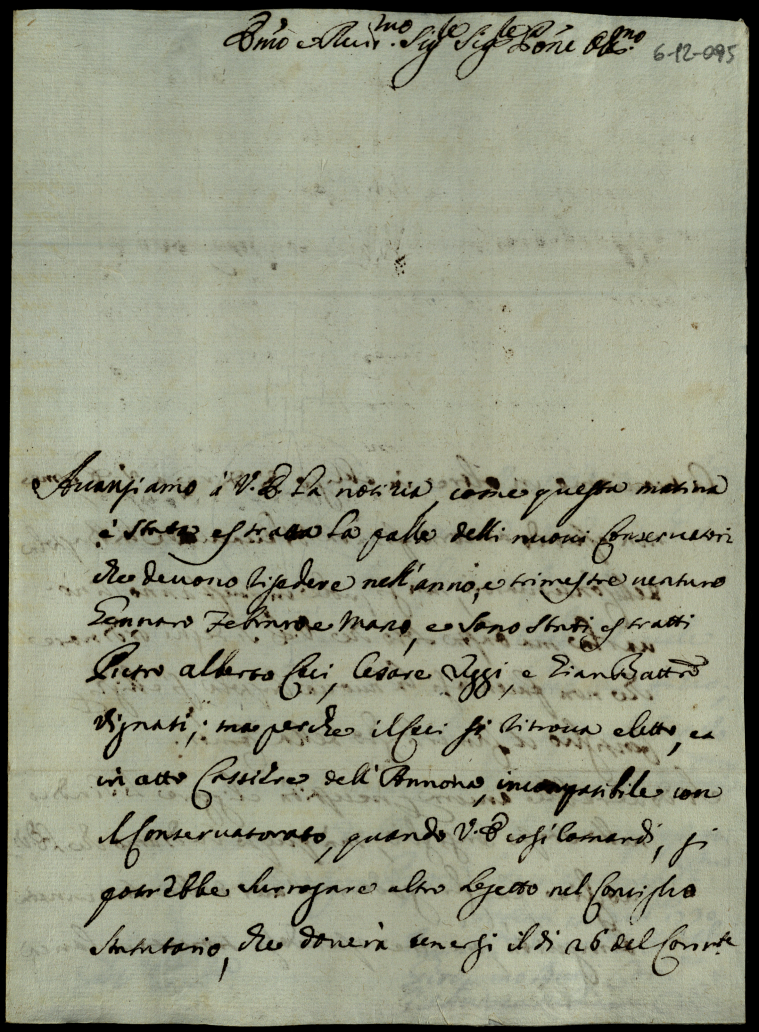 Em̃o e Rev.mo Sig.re Sig.re P̃one Oss.mo
6-12-095
Avansiamo à V. E. la notizia, come questa matina
è stata estratta la palla delli nuovi Conservatori
che devono risedere nell'anno, e trimestre venturo
Gennaro Febraro e Marzo, e sono stati estratti
Pietro Alberto Ceci, Cesare Uggi, e Gian Battã
Vignati; ma perche il Ceci si ritrova eletto, ed
in atto Cassiere dell'Annona, incompatibile con
il Conservatorato, quando V. E. così comandi, si
potrebbe surrogare altro Sogetto nel Consiglio
Statutario, che doverà tenersi il dì 26 del Corr.te